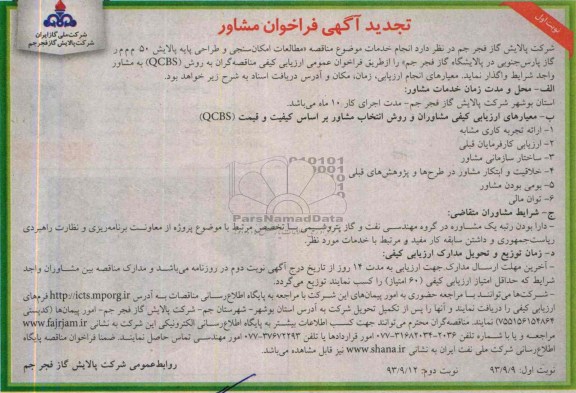 نوبت اول
تجدید آگهی فراخوان مشاور
شرکت ملی گاز ایران
شرکت پالایش گاز فجر جم
شرکت پالایش گاز فجر جم در نظر دارد انجام خدمات موضوع مناقصه «مطالعات امکان‌سنجی و طراحی پایه پالایش ۵۰ م‌م‌م‌ر
گاز پارس‌جنوبی در پالایشگاه گاز فجر جم» را ازطریق فراخوان عمومی ارزیابی کیفی مناقصه‌گران به روش (QCBS) به مشاور
واجد شرایط واگذار نماید. معیارهای انجام ارزیابی، زمان، مکان و آدرس دریافت اسناد به شرح زیر خواهد بود.
الف- محل و مدت زمان خدمات مشاور:
استان بوشهر شرکت پالایش گاز فجر جم- مدت اجرای کار ۱۰ ماه می‌باشد.
ب- معیارهای ارزیابی کیفی مشاوران و روش انتخاب مشاور بر اساس کیفیت و قیمت (QCBS)
۱- ارائه تجربه کاری مشابه
۲- ارزیابی کارفرمایان قبلی
۳- ساختار سازمانی مشاور
۴- خلاقیت و ابتکار مشاور در طرح‌ها و پژوهش‌های قبلی
۵- بومی بودن مشاور
۶- توان مالی
ج- شرایط مشاوران متقاضی:
- دارا بودن رتبه یک مشاوره در گروه مهندسی نفت و گاز پتروشیمی بـا تخصص مرتبط با موضوع پروژه از معاونت برنامه‌ریزی و نظارت راهبردی
ریاست‌جمهوری و داشتن سابقه کار مفید و مرتبط با خدمات مورد نظر.
د- زمان توزیع و تحویل مدارک ارزیابی کیفی:
- آخرین مهلت ارسال مدارک جهت ارزیابی به مدت ۱۴ روز از تاریخ درج آگهی نوبت دوم در روزنامه می‌باشد و مدارک مناقصه بین مشاوران واجد
شرایط که حداقل امتیاز ارزیابی کیفی (۶۰ امتیاز) را کسب نمایند توزیع می‌گردد.
- شرکت‌ها می‌توانند بـا مراجعه حضوری به امور پیمان‌های این شرکت یا مراجعه به پایگاه اطلاع‌رسانی مناقصات به آدرس http://icts.mporg.ir فرم‌های
ارزیابی کیفی را دریافت نمایند و آنها را پس از تکمیل تحویل شرکت به آدرس استان بوشهر- شهرستان جم- شرکت پالایش گاز فجر جم- امور پیمان‌ها (کدپستی
۷۵۵۱۵۶۱۵۲۸۶۴) نمایند. مناقصه‌گران محترم می‌توانند جهت کسب اطلاعات بیشتر به پایگاه اطلاع‌رسانی الکترونیکی این شرکت به نشانی www.fajrjam.ir
مراجعه و یا با شماره تلفن ۲۰۳۶-۰۷۷-۳۱۶۸۲۰۳۴ امور قراردادها یا تلفن ۳۷۶۷۲۲۹۳-۰۷۷ امور مهندسی تماس حاصل نمایند. ضمنا فراخوان مناقصه پایگاه
اطلاع‌رسانی شرکت ملی نفت ایران به نشانی www.shana.ir نیز قابل مشاهده می‌باشد.
نوبت اول: ۹۳/۹/۹ نوبت دوم: ۹۳/۹/۱۲
روابط‌عمومی شرکت پالایش گاز فجر جم
ParsNamadData